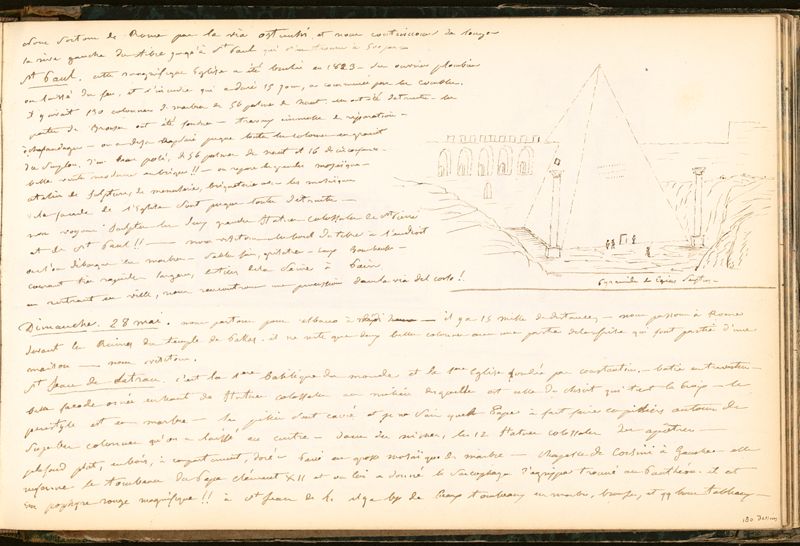 nous sortons de Rome par la via ostensis et nous continuons de longer
la rive gauche du tibre jusqu'à St Paul qui
St Paul. cette magnifique Eglise a été brulée en 1823 - des ouvriers plombiers
ont laissé du feu, et l'incendie qui a duré 15 jours, a commencé par les combles.
Il y avait 130 colonnes de marbre de 56 palmes de haut. ont été detruites - les
portes de Bronze ont été fondues - travaux immenses de réparation -
- on a deja remplacé presque toutes les colonnes en granit
du Simplon, d'un beau poli, de 56 palmes de haut et 16 de circonférence.
belle voute moderne en briques!! - on repare les grandes mosaïques -
atelier de sculpture, de menuiserie, briqueterie - les mosaïques
de la façade de l'Eglise sont presque toutes detruites -
nous voyons sculpter les deux grandes Statues colossales de St Pierre
et de St Paul!! - nous visitons les bords du tibre à l'endroit
où l'on débarque les marbres - sable fin,
courant très rapide largeur, celles de la Seine à Paris
en rentrant en ville, nous rencontrons une procession dans la via del corso!
Pyramide de Caius Sestius -
Dimanche. 28 mai. nous partons pour albano à midi - il y a 15 milles de distance - nous passons à Rome
devant les Ruines du temple de Pallas. il ne reste que deux belles colonnes avec une partie de la frise qui font partie d'une
maison - nous visitons.
St Jean de Latran, c'est la 1ere Basilique du monde et la 1ere Eglise fondée par constantin. - batie en travertin -
belle façade ornée en haut de Statues colossales au milieu desquelles est celle du christ qui tient la croix - le
peristyle est en marbre - les piliers sont carrés et je ne sais quel Pape a fait faire ces piliers autour des
superbes colonnes qu'on a laissé au centre - dans des niches, les 12 Statues colossales des apôtres -
plafond plat, en bois, à compartiments, doré - Pavé en grosse mosaïque de marbre - chapelle de Corsini à Gauche - elle
renferme le tombeau du Pape clément XII et on lui a donné le Sarcophage d'agrippa trouvé au Panthéon. il est
en porphyre rouge magnifique!! à St Jean de L. il y a bp de beaux tombeaux en marbre, bronze, et qq bons tableaux -
180 Dessins